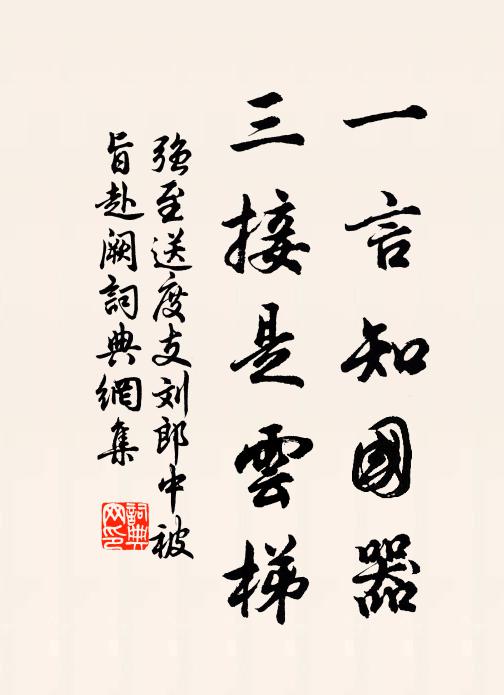 一言知國器
三接是雲梯
強至送度支刘郎中被
旨赴阙詞典網集
詞典
网印